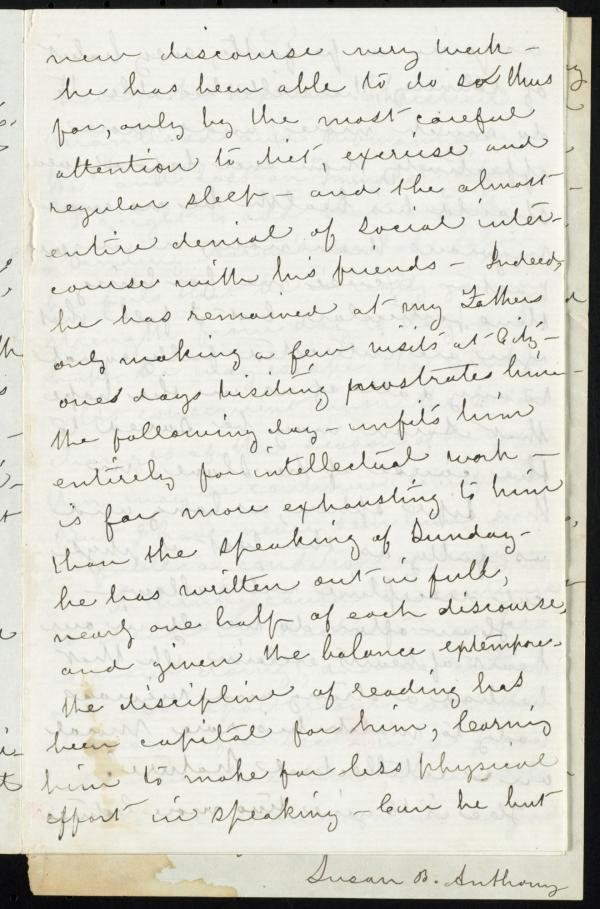 new discourse every week –
he has been able to do so thus
far, only by the most careful
attention to diet, exercise and
regular sleep – and the almost
entire denial of social inter-
course with his friends – Indeed,
he has remained at my Fathers
only making a few visits at City –
ones days visiting prostrates him –
the following day – unfits him
entirely for intellectual work –
is far more exhausting to him
than the speaking of Sunday –
he has written out in full,
nearly one half of each discourse,
and given the balance extempore –
the discipline of reading has
been capital for him, learning
him to make far less physical
effort in speaking – Can he but
Susan B. Anthony